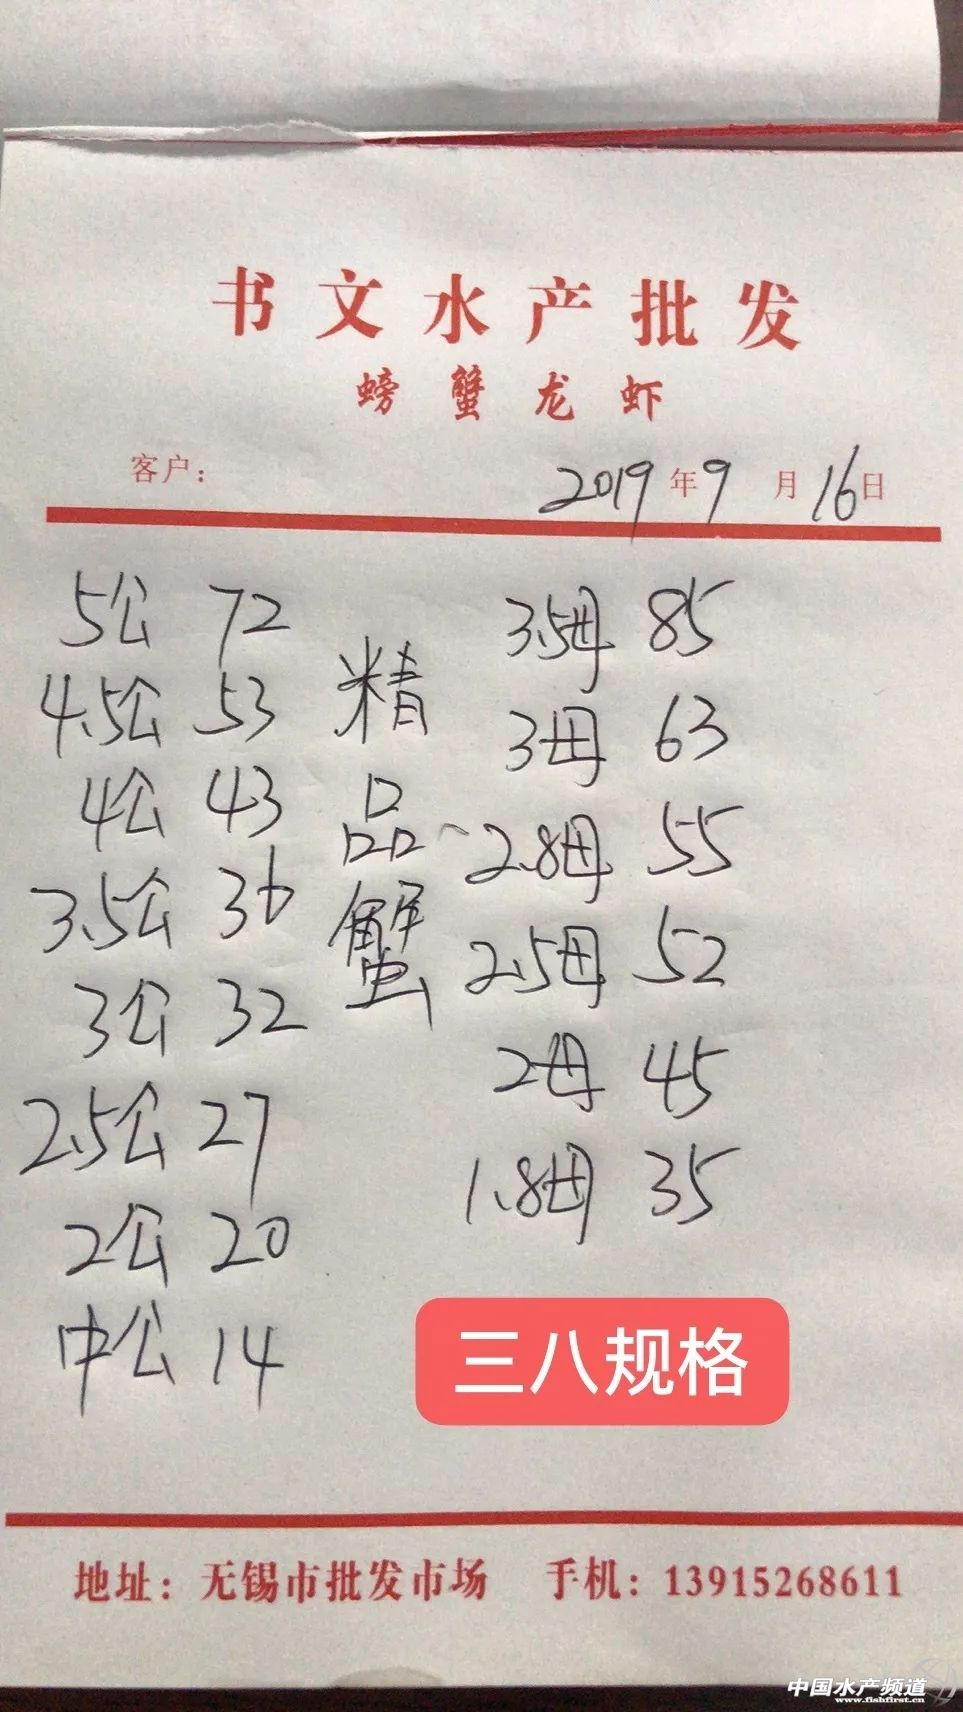 书文水产批发
螃蟹龙虾
客户： 2019年9月16日
5公 72
4.5公 53
4公 43
3.5公 36
3公 32
2.5公 27
2公 20
中公 14
精品蟹
3.5母 85
3母 63
2.8母 55
2.5母 52
2母 45
1.8母 35
三八规格
地址：无锡市批发市场 手机：13915268611
中国水产频道
www.fishfirst.cn